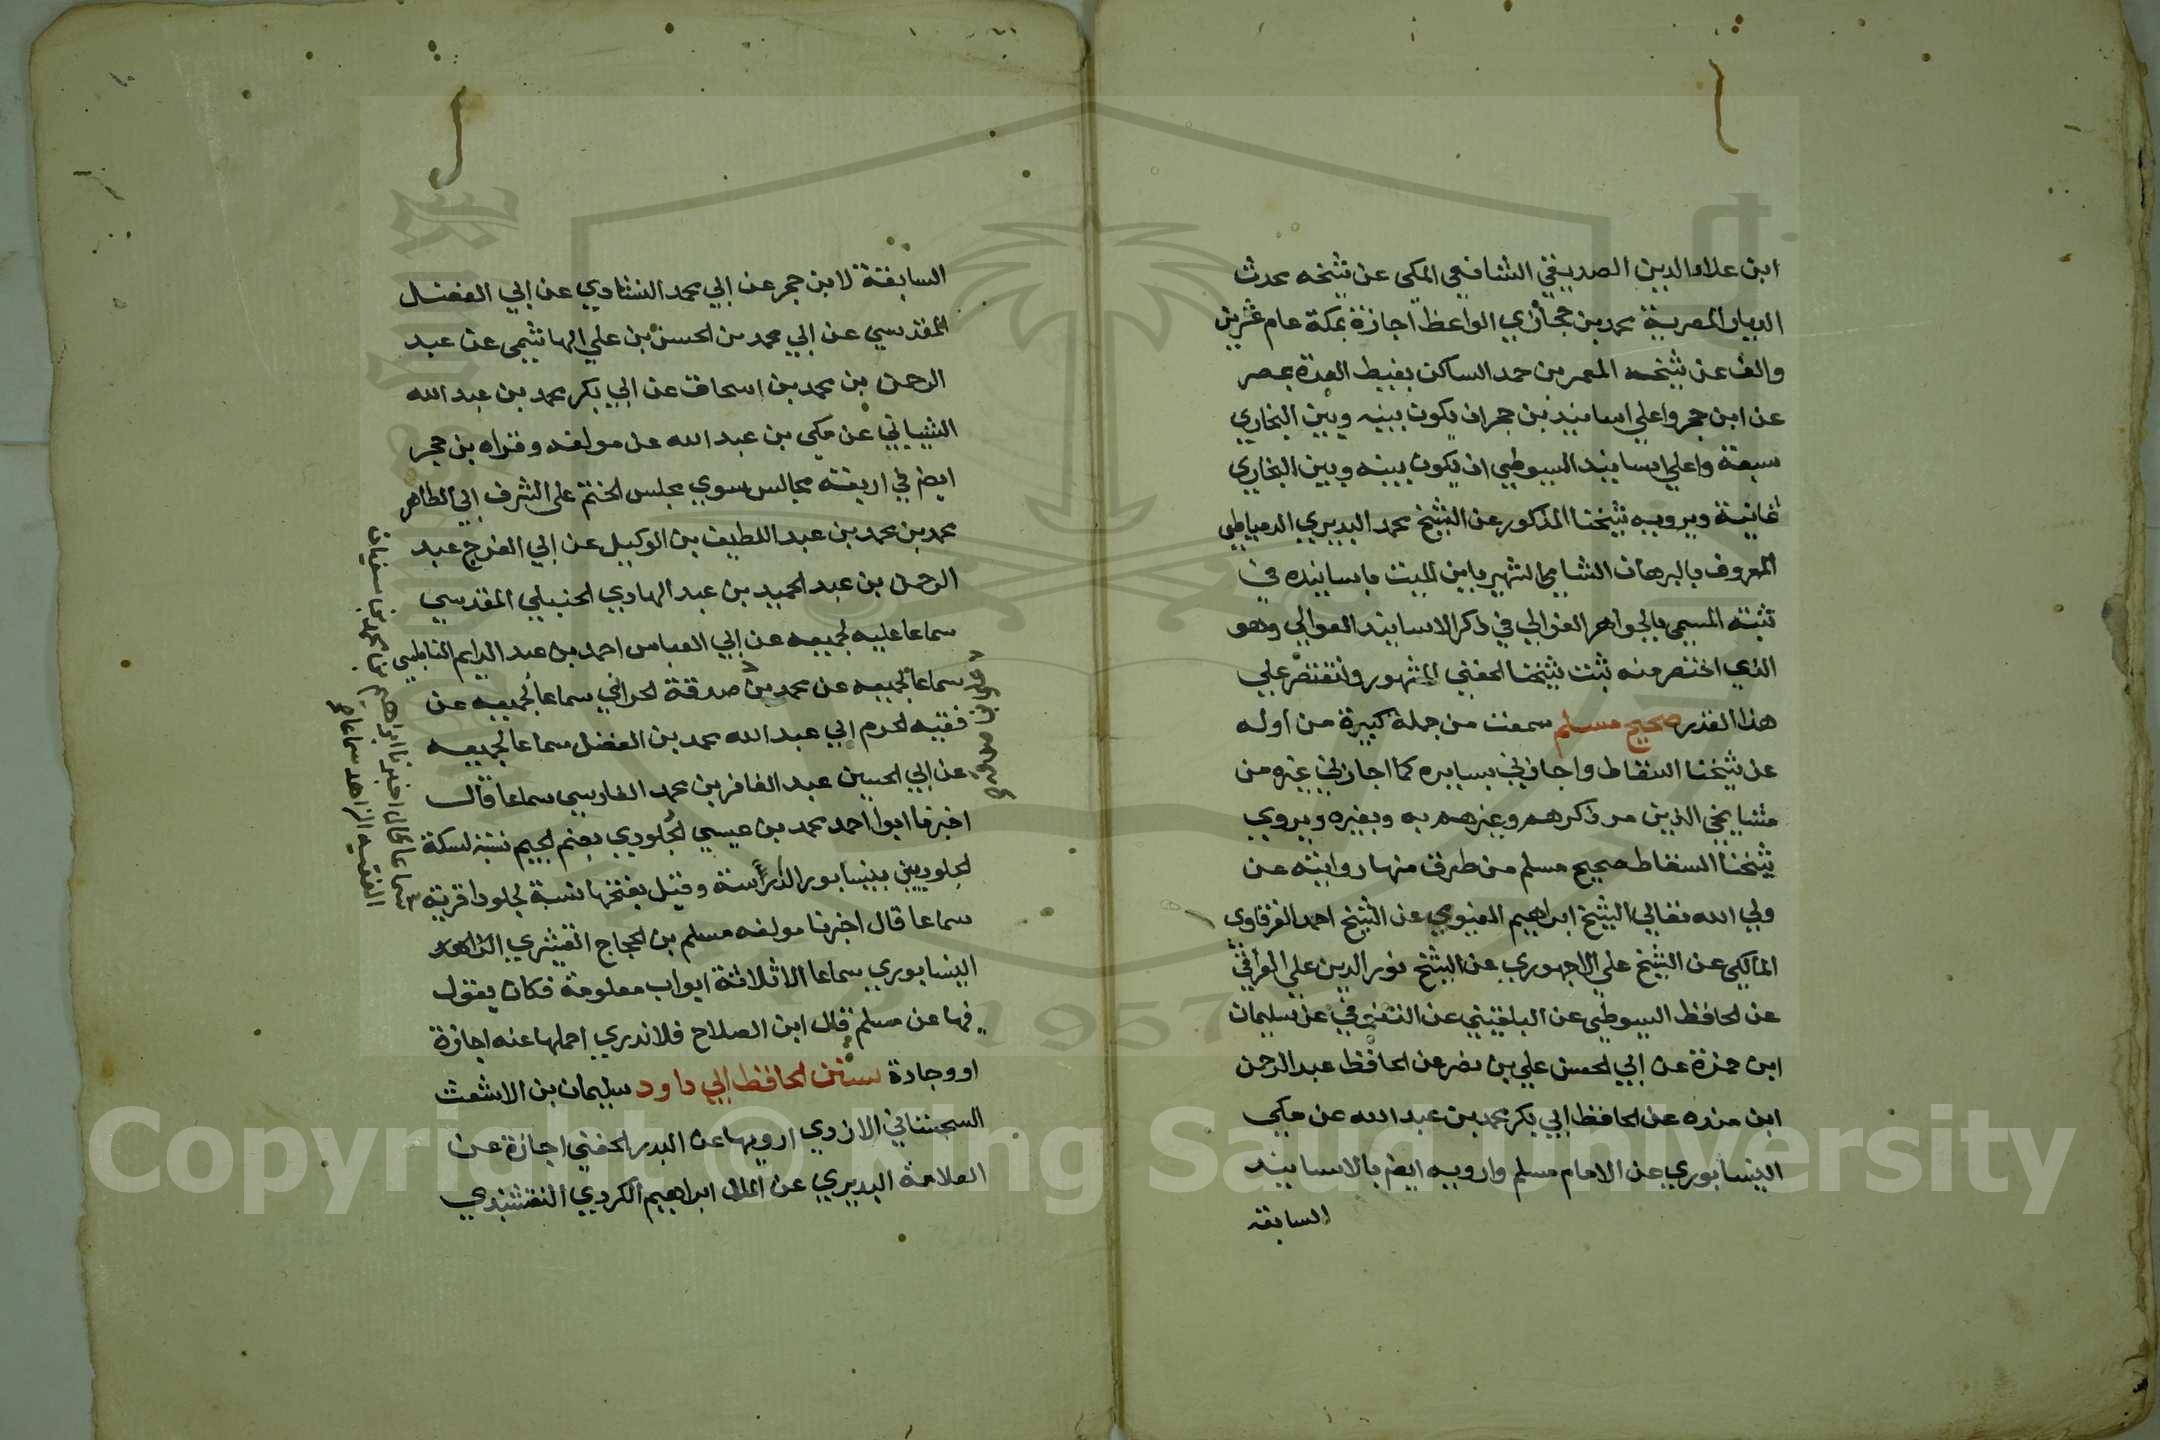 ابن علاء الدين الصديقي الشافعي المكي عن شيخه محدث
الديار المصرية محمد بن حجازي الواعظ اجازة بمكة عام عشرين
والف عن شيخه المعمر بن حمد الساكن بغيط العدة بمصر
عن ابن حجر واعلي اسانيد بن حجر ان يكون بينه وبين البخاري
سبعة واعلي اسانيد السيوطي ان يكون بينه وبين البخاري
ثمانية ويرويه شيخنا المذكور عن الشيخ محمد البديري الدمياطي
المعروف بالبرهان الشامي الشهير بابن الميت باسانيده في
ثبته المسمي بالجواهر الغوالي في ذكر الاسانيد العوالي وهو
الذي اختصر منه ثبت شيخنا الحفني المشهور ولنقتصر علي
هذا القدر صحيح مسلم سمعت من جملة كبيرة من اوله
عن شيخنا السقاط واجازني بسايره كما اجازني غيره من
مشايخي الذين مر ذكرهم وغيرهم به وبغيره ويروي
شيخنا السقاط صحيح مسلم من طرق منها روايته عن
ولي الله تعالي الشيخ ابراهيم الفيومي عن الشيخ احمد الغرقاوي
المالكي عن الشيخ علي الاجهوري عن الشيخ نور الدين علي القرافي
عن الحافظ السيوطي عن البلقيني عن التنوخي عن سليمان
ابن حمزة عن ابي الحسن علي بن نصر عن الحافظ عبد الرحمن
ابن منده عن الحافظ ابي بكر محمد بن عبد الله عن مكي
النيسابوري عن الامام مسلم وارويه ايضا بالاسانيد
السابقة
السابقة لابن حجر عن ابي محمد النشاوي عن ابي الفضل
المقدسي عن ابي محمد بن الحسن بن علي الهاشمي عن عبد
الرحمن بن محمد بن اسحاق عن ابي بكر محمد بن عبد الله
الشيباني عن مكي بن عبد الله عن مولفه وقراه بن حجر
ايضا في اربعة مجالس سوي مجلس الختم علي الشرف ابي الطاهر
محمد بن محمد بن عبد اللطيف بن الوكيل عن ابي الفرج عبد
الرحمن بن عبد الحميد بن عبد الهادي الحنبلي المقدسي
سماعا عليه لجميعه عن ابي العباس احمد بن عبد الدايم النابلسي
سماعا لجميعه عن محمد بن صدقة الحراني سماعا لجميعه عن
فقيه الحرم ابي عبد الله محمد بن الفضل سماعا لجميعه
عن ابي الحسين عبد الغافر بن محمد الفارسي سماعا قال
اخبرنا ابوا احمد محمد بن عيسي الجلودي بضم الجيم نسبة لسكة
الجلوديين بنيسابور الدارسة وقيل بفتحها نسبة لجلود اقرية
سماعا قال اخبرنا مولفه مسلم بن الحجاج القشيري الزاهد
النيسابوري سماعا الا ثلاثة ابواب معلومة فكان يقول
فيها عن مسلم قال ابن الصلاح فلا ندري احملها عنه اجازة
او وجادة سنن الحافظ ابي داود سليمان بن الاشعث
السجستاني الازدي ارويها عن البدر الحفني اجازة عن
العلامة البديري عن الملا ابراهيم الكردي النقشبندي
سماعا قال اخبرنا ابراهيم بن محمد بن سفيان
الفقيه الزاهد سماعا
Copyright © King Saud University
1957